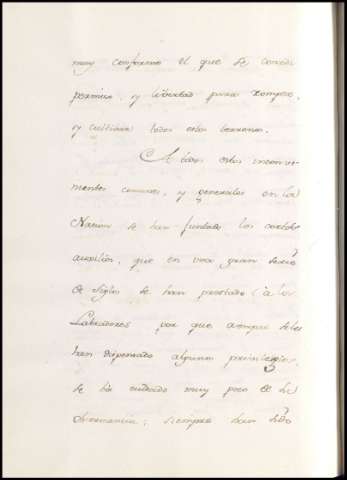 muy conforme el que se conceda
permiso, y libertad para romper,
y cultivar todos estos terrenos.
A todos estos inconve-
nientes comunes, y generales en la
Nacion se han juntado los cortos
auxilios, que en una gran serie
de siglos se han prestado à los
Labradores por que aunque se les
han dispensado algunos privilegios,
se ha cuidado muy poco de su
observancia; siempre han sido